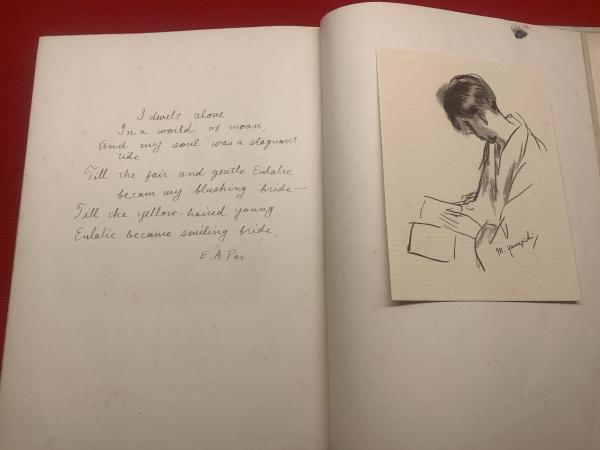 I dwelt alone
In a world of moan,
And my soul was a stagnant
tide
Till the fair and gentle Eulalie
becam my blushing bride—
Till the yellow-haired young
Eulalie became smiling bride.
E. A Poe
M.